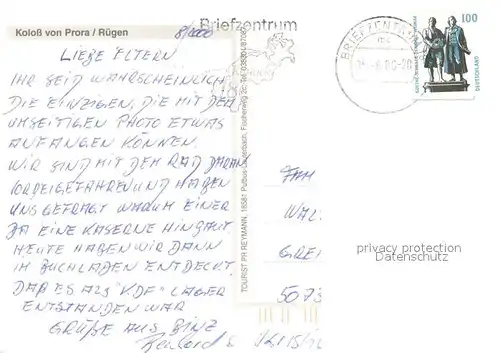 Koloß von Prora / Rügen
8/2000
LIEBE ELTERN
IHR SEID WAHRSCHEINLICH
DIE EINZIGEN, DIE MIT DEM
UMSEITIGEN PHOTO ETWAS
ANFANGEN KÖNNEN.
WIR SIND MIT DEM RAD DARAN
VORBEIGEFAHREN UND HABEN
UNS GEFRAGT WARUM EINER
DA EINE KASERNE HINBAUT.
HEUTE HABEN WIR DANN
IM BUCHLADEN ENTDECKT,
DAß ES ALS "KDF" LAGER
ENTSTANDEN WAR
GRÜßE AUS BINZ
TOURIST PR REYMANN, 18581 Putbus-Lauterbach, Fischerweg 2c, Tel.
Briefzentrum
BRIEFZENTRUM
100
DEUTSCHLAND
FAM
WAL
GREI
5073
privacy protection
Datenschutz